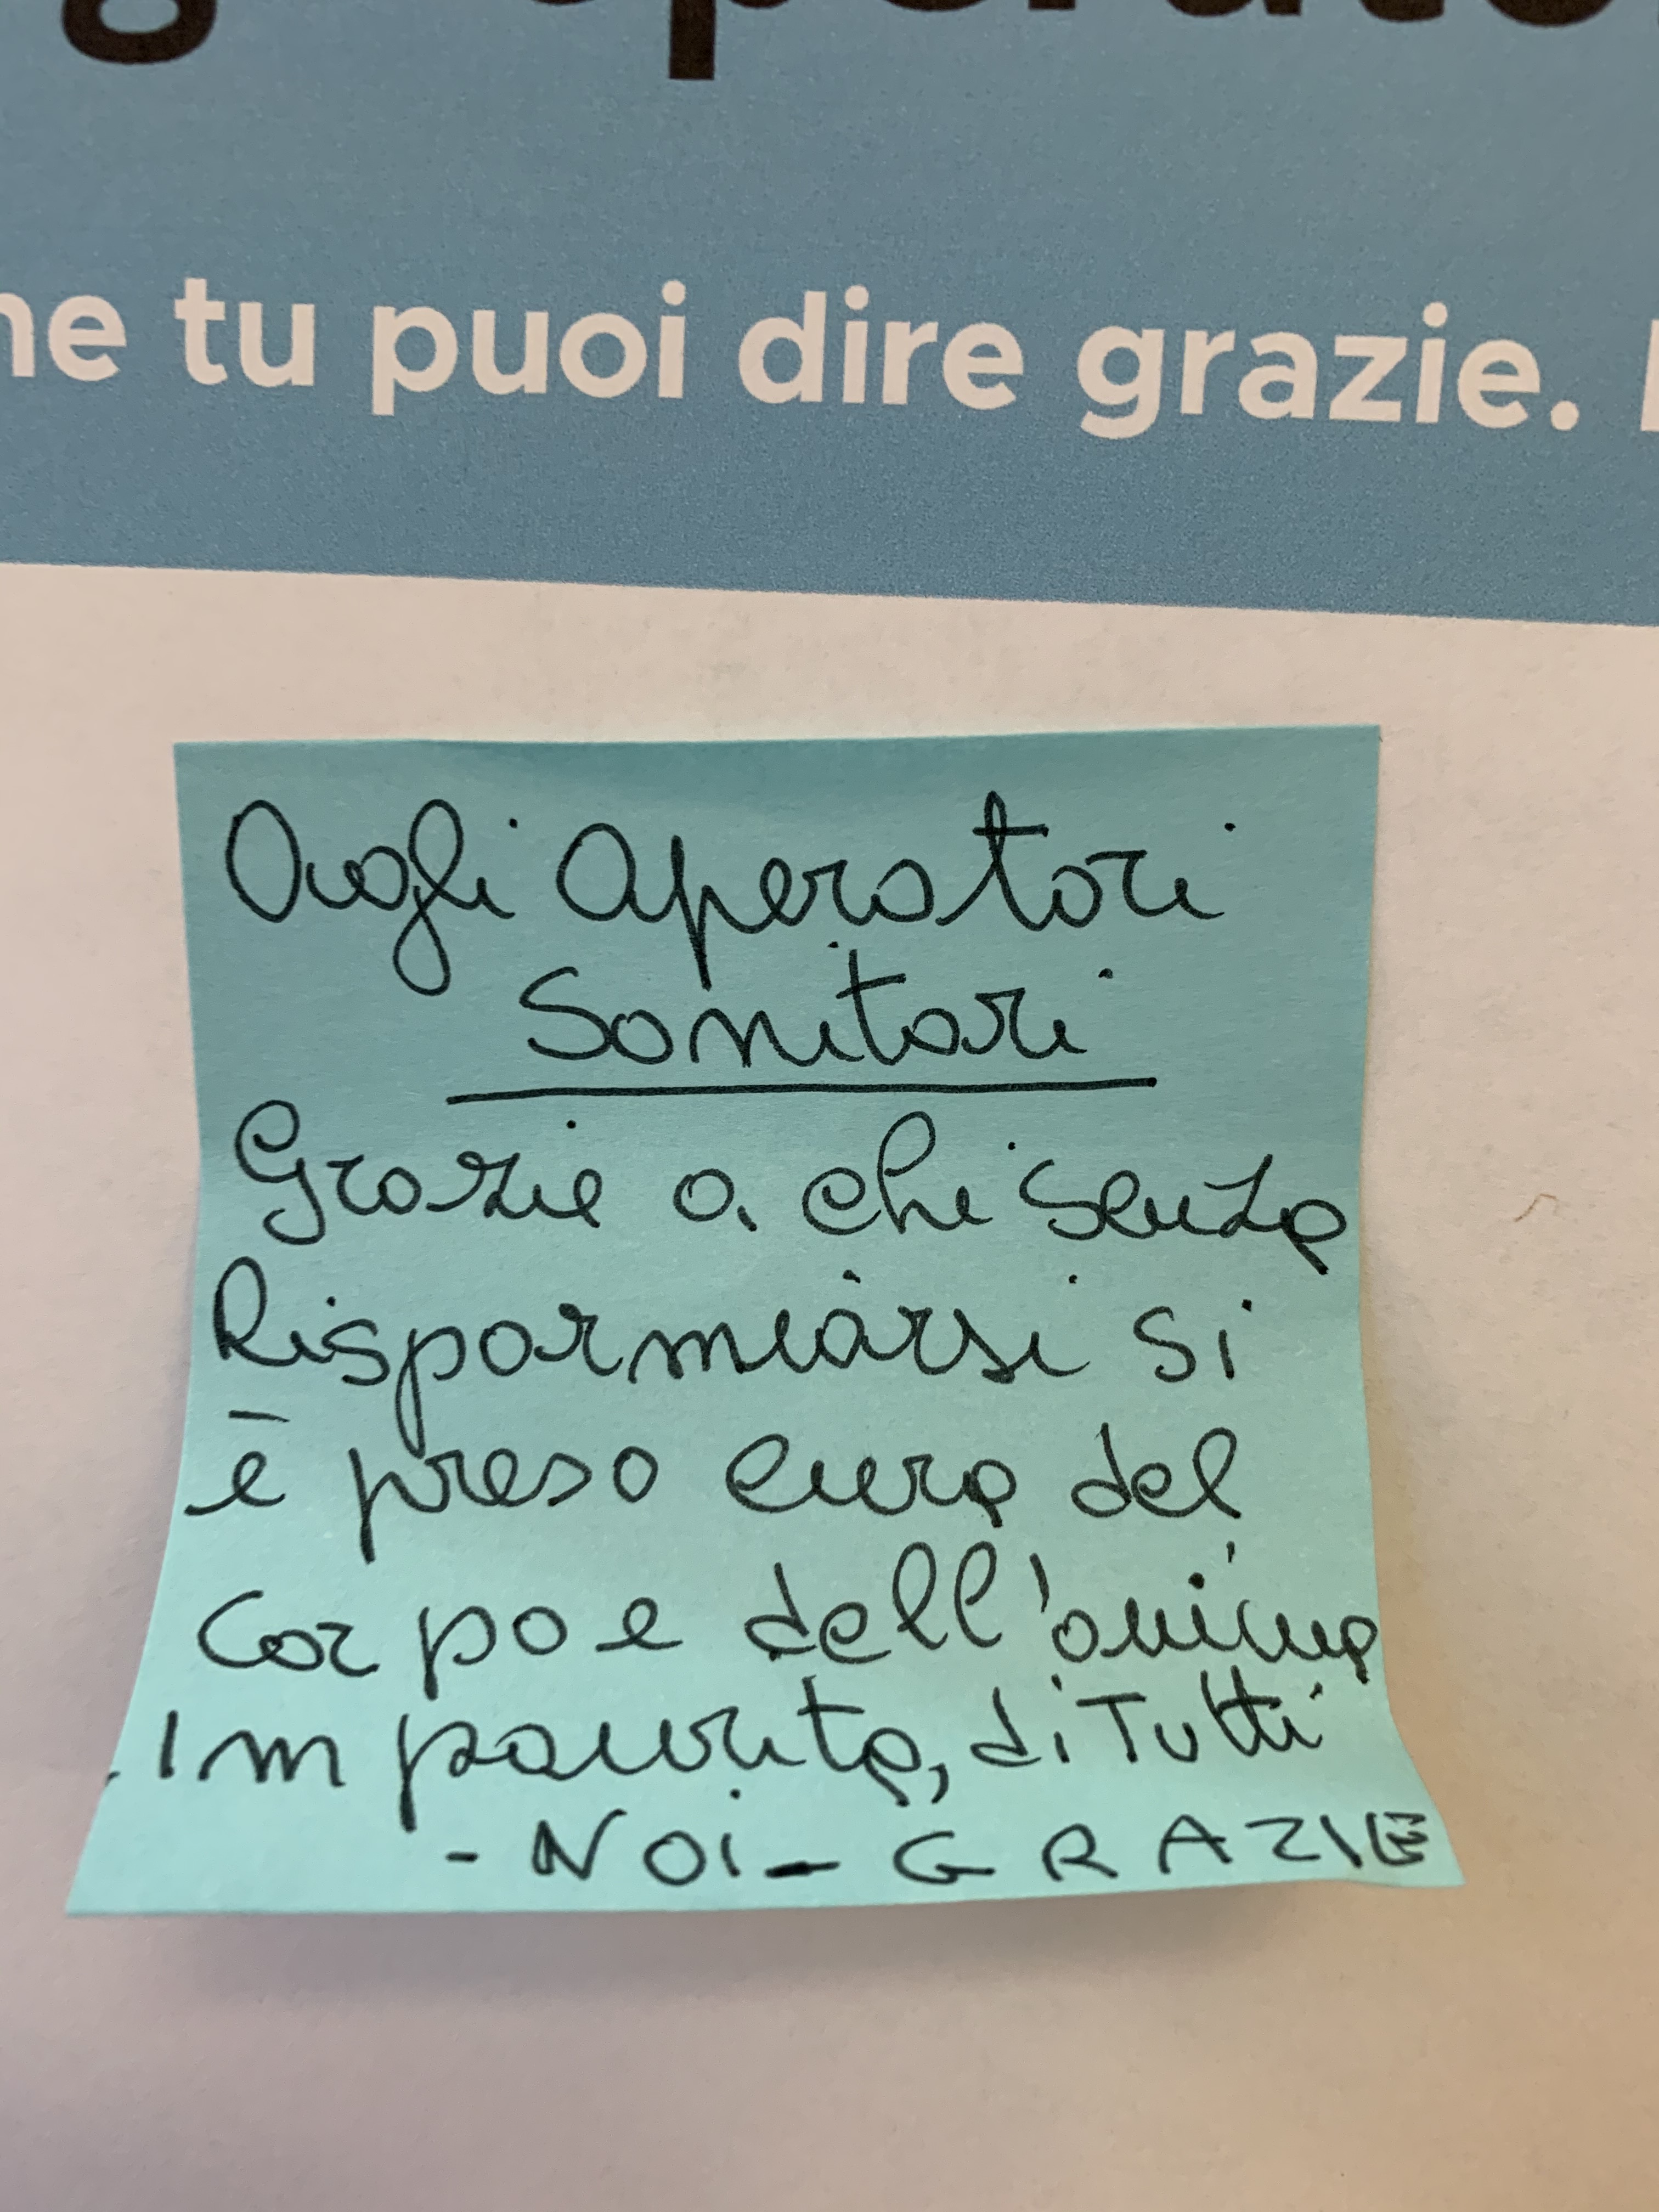 he tu puoi dire grazie.
Agli Operatori
Sanitari
Grazie a chi senza
Risparmiarsi si
è preso cura del
corpo e dell'anima
impaurita, di Tutti
- NOI - GRAZIE